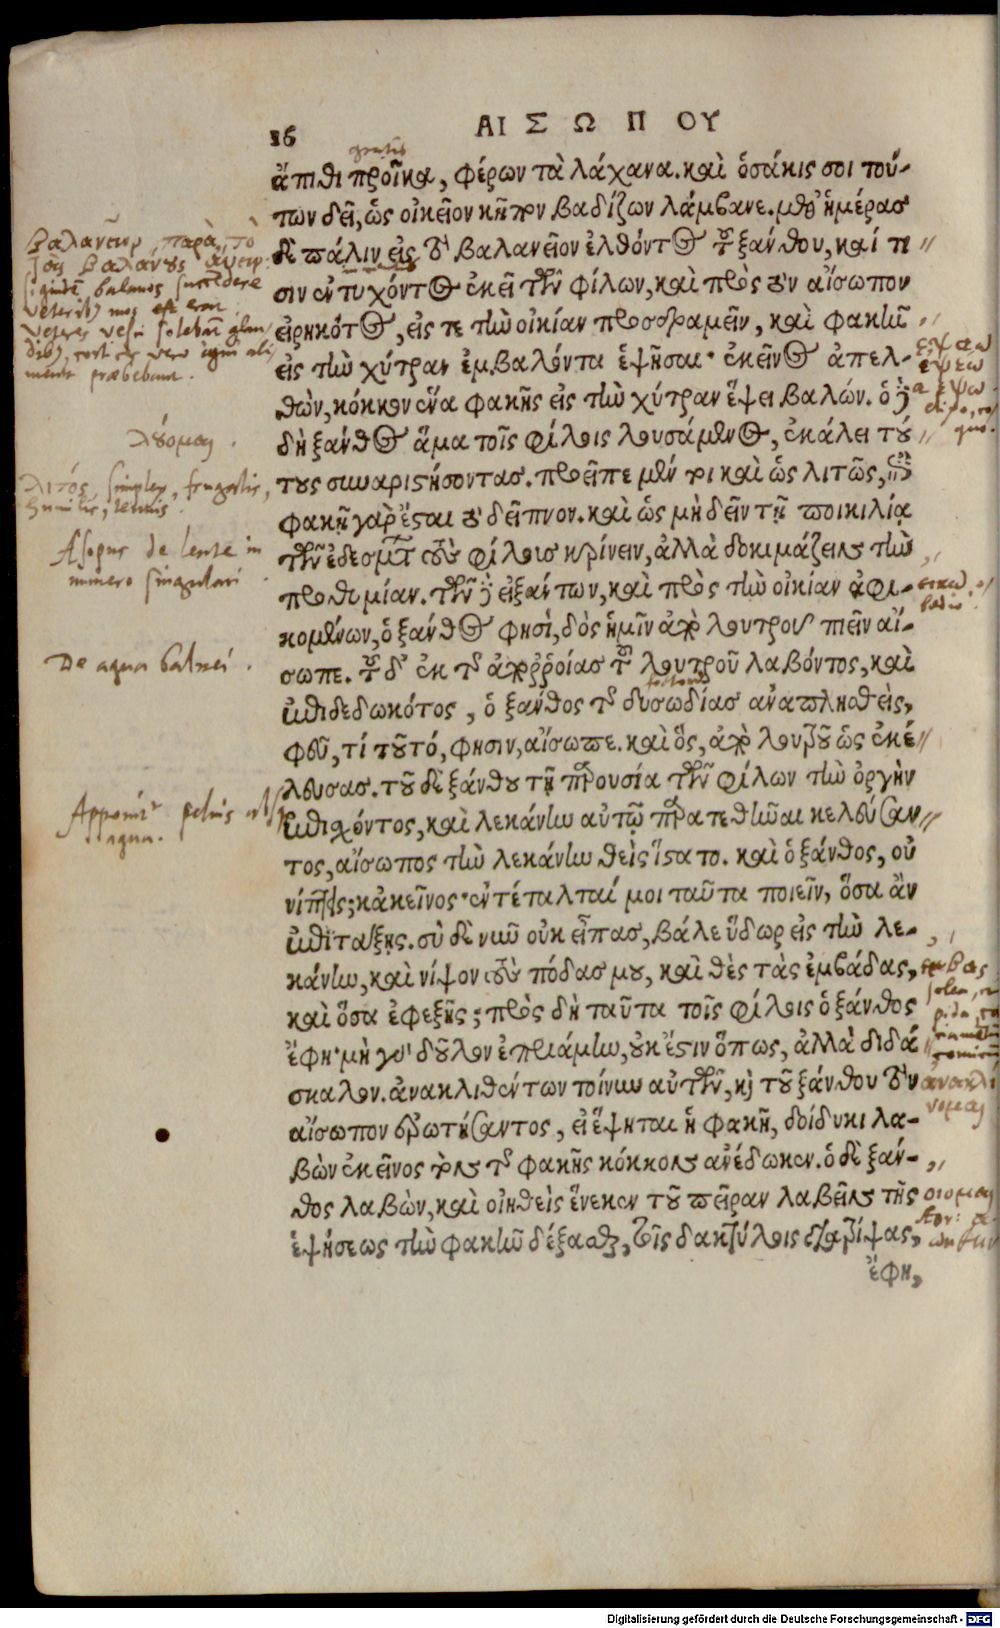 16
ΑΙΣΩΠΟΥ
gratis
ἄπιθι προῖκα, φέρων τὰ λάχανα. καὶ ὁσάκις σοι τού-
των δεῖ, ὡς οἰκεῖον κῆπον βαδίζων λάμβανε. μεθ᾽ ἡμέρας
δὲ πάλιν εἰς τὸ βαλανεῖον ἐλθόντος τοῦ ξάνθου, καί τι
σιν ἐντυχόντος ἐκεῖ τῶν φίλων, καὶ πρὸς τὸν αἴσωπον
εἰρηκότος, εἰς τε τὴν οἰκίαν προσδραμεῖν, καὶ φακῆν
εἰς τὴν χύτραν ἐμβαλόντα ἑψῆσαι· ἐκεῖνος ἀπελ-
θὼν, κόκκον ἕνα φακῆς εἰς τὴν χύτραν ἕψει βαλών. ὁ δὲ
δὴ ξάνθος ἅμα τοῖς φίλοις λουσάμενος, ἐκάλει τού
τους συναριστήσοντας. προεῖπε μέν τοι καὶ ὡς λιτῶς, ἐπὶ
φακῇ γὰρ ἔσται τὸ δεῖπνον. καὶ ὡς μὴ δεῖν τῇ ποικιλίᾳ
τῶν ἐδεσμάτων τοὺς φίλους κρίνειν, ἀλλὰ δοκιμάζειν τὴν
προθυμίαν. τῶν δὲ εἰξάντων, καὶ πρὸς τὴν οἰκίαν ἀφι-
κομένων, ὁ ξάνθος φησὶ, δὸς ἡμῖν ἀπὸ λουτροῦ πιεῖν αἴ-
σωπε. τοῦ δ᾽ ἐκ τῆς ἀπορροίας τοῦ λουτροῦ λαβόντος, καὶ
ἐπιδεδωκότος, ὁ ξάνθος τῆς δυσωδίας ἀναπλησθεὶς,
φεῦ, τί τοῦτό, φησιν, αἴσωπε. καὶ ὃς, ἀπὸ λουτροῦ ὡς ἐκέ
λευσας. τοῦ δὲ ξάνθου τῇ παρουσίᾳ τῶν φίλων τὴν ὀργὴν
ἐπισχόντος, καὶ λεκάνην αὐτῷ παρατεθῆναι κελεύσαν
τος, αἴσωπος τὴν λεκάνην θεὶς ἵστατο. καὶ ὁ ξάνθος, οὐ
νίπτεις; κἀκεῖνος· ἐντέταλταί μοι ταῦτα ποιεῖν, ὅσα ἂν
ἐπιτάξῃς. σὺ δὲ νῦν οὐκ εἶπας, βάλε ὕδωρ εἰς τὴν λε-
κάνην, καὶ νίψον τοὺς πόδας μου, καὶ θὲς τὰς ἐμβάδας,
καὶ ὅσα ἐφεξῆς; πρὸς δὴ ταῦτα τοῖς φίλοις ὁ ξάνθος
ἔφη· μὴ γὰρ δοῦλον ἐπριάμην, οὐκ ἔστιν ὅπως, ἀλλὰ διδά
σκαλον. ἀνακλιθέντων τοίνυν αὐτῶν, καὶ τοῦ ξάνθου τὸν
αἴσωπον ἐρωτήσαντος, εἰ ἕψηται ἡ φακῆ, δοίδυκι λα-
βὼν ἐκεῖνος τὸν τῆς φακῆς κόκκον ἀνέδωκεν. ὁ δὲ ξάν-
θος λαβὼν, καὶ οἰηθεὶς ἕνεκεν τοῦ πεῖραν λαβεῖν τῆς
ἑψήσεως τὴν φακῆν δέξασθαι, τοῖς δακτύλοις διατρίψας,
ἔφη,
λούομαι.
λιτός, simplex, frugalis,
humilis, tenuis.
Aesopus de lente in
numero singulari
De aqua balnei.
ἕψω
Digitalisierung gefördert durch die Deutsche Forschungsgemeinschaft - DFG